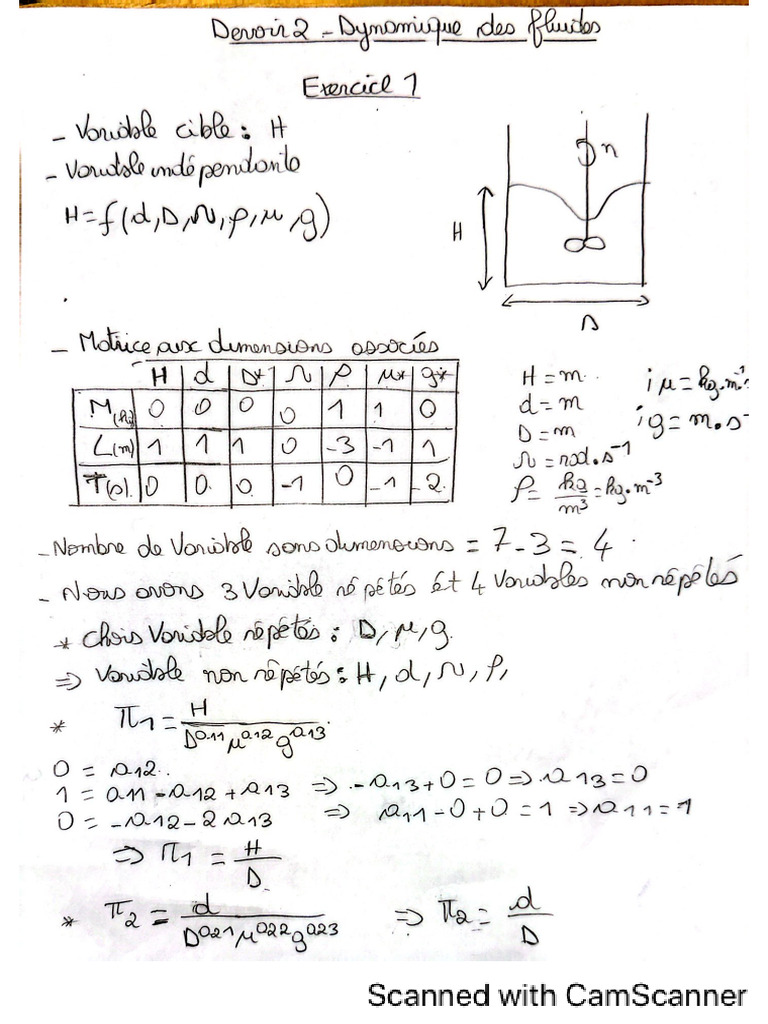 Devoir 2 - Dynamique des fluides
Exercice 1
- Variable cible : H
- Variable indépendante
H = f(d, D, N, ρ, μ, g)
n
H
D
- Matrice aux dimensions associés
H | d | D* | N | ρ | μ* | g*
M(kg) | 0 | 0 | 0 | 0 | 1 | 1 | 0
L(m) | 1 | 1 | 1 | 0 | -3 | -1 | 1
T(s) | 0 | 0 | 0 | -1 | 0 | -1 | -2
H = m
d = m
D = m
N = rad.s⁻¹
ρ = kg/m³ = kg.m⁻³
; μ = kg.m⁻¹
; g = m.s⁻
- Nombre de Variable sans dimensions = 7 - 3 = 4.
- Nous avons 3 Variable répétés et 4 Variables non répétés
* Chois Variable répétés : D, μ, g.
⇒ Variable non répétés : H, d, N, ρ,
* π1 = H / D^a11 μ^a12 g^a13
0 = a12.
1 = a11 - a12 + a13 ⇒ - a13 + 0 = 0 ⇒ a13 = 0
0 = -a12 - 2 a13 ⇒ a11 - 0 + 0 = 1 ⇒ a11 = 1
⇒ π1 = H / D
* π2 = d / D^a21 μ^a22 g^a23 ⇒ π2 = d / D
Scanned with CamScanner